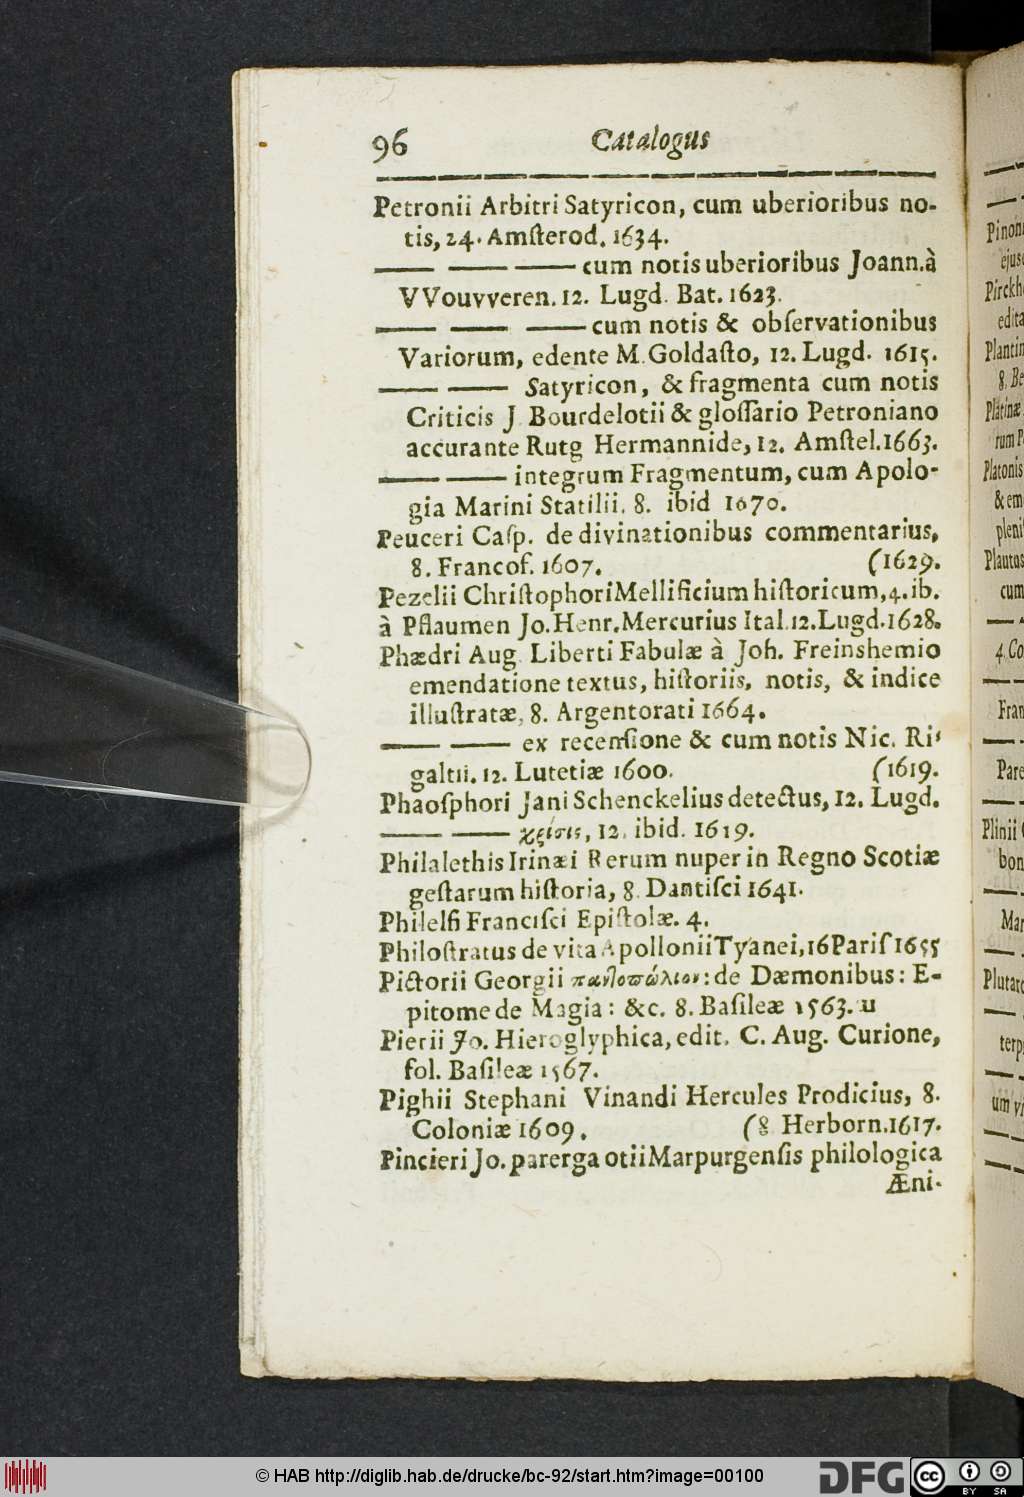 96 Catalogus
Petronii Arbitri Satyricon, cum uberioribus no-
tis, 24. Amſterod. 1634.
——— cum notis uberioribus Joann. à
VVouvveren. 12. Lugd. Bat. 1623.
——— cum notis & obſervationibus
Variorum, edente M. Goldaſto, 12. Lugd. 1615.
—— Satyricon, & fragmenta cum notis
Criticis J. Bourdelotii & gloſſario Petroniano
accurante Rutg Hermannide, 12. Amſtel. 1663.
—— integrum Fragmentum, cum Apolo-
gia Marini Statilii. 8. ibid 1670.
Peuceri Caſp. de divinationibus commentarius,
8. Francof. 1607. (1629.
Pezelii Chriſtophori Mellificium hiſtoricum, 4. ib.
à Pflaumen Jo. Henr. Mercurius Ital. 12. Lugd. 1628.
Phædri Aug Liberti Fabulæ à Joh. Freinshemio
emendatione textus, hiſtoriis, notis, & indice
illuſtratæ, 8. Argentorati 1664.
—— ex recenſione & cum notis Nic. Ri-
galtii. 12. Lutetiæ 1600. (1619.
Phaoſphori Jani Schenckelius detectus, 12. Lugd.
—— κρίσις, 12. ibid. 1619.
Philalethis Irinæi Rerum nuper in Regno Scotiæ
geſtarum hiſtoria, 8. Dantiſci 1641.
Philelfi Franciſci Epiſtolæ. 4.
Philoſtratus de vita Apollonii Tyanei, 16 Pariſ 1655
Pictorii Georgii παντοπώλιον: de Dæmonibus: E-
pitome de Magia: &c. 8. Baſileæ 1563. u
Pierii Jo. Hieroglyphica, edit. C. Aug. Curione,
fol. Baſileæ 1567.
Pighii Stephani Vinandi Hercules Prodicius, 8.
Coloniæ 1609. (8 Herborn. 1617.
Pincieri Jo. parerga otii Marpurgenſis philologica
Æni-
Pinoni
ejus
Pirckh
edita
Plantin
8. Be
Platinæ
rum P
Platonis
& em
pleni
Plautus
cum
4. Co
Fran
Pare
Plinii
bon
Mar
Plutarc
terp
um vi
© HAB http://diglib.hab.de/drucke/bc-92/start.htm?image=00100
DFG
cc
BY SA